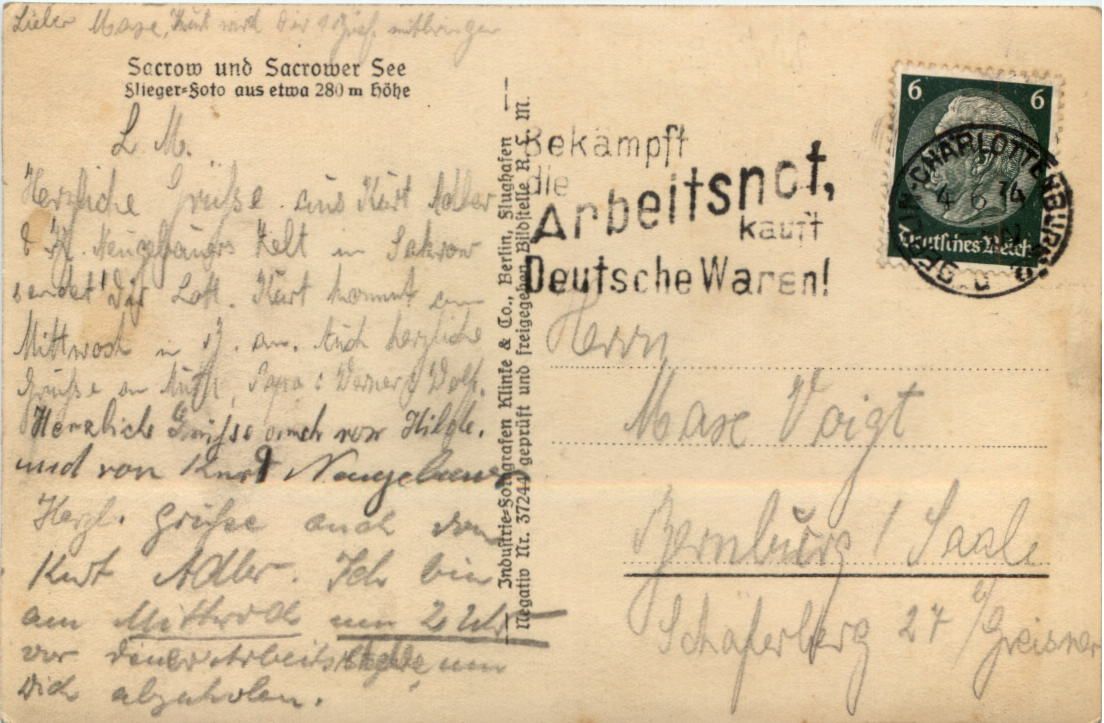 Lieber Maxe, Kurt wird Dir mitbringen
Sacrow und Sacrower See
Flieger-Foto aus etwa 280 m Höhe
L. M.
Herzliche Grüße aus Kurt Adler
& Neugebauers Zelt in Sakrow
sendet Dir Kurt kommt am
Mittwoch in B. an. Auch herzliche
Grüße an Papa Werner & Wolf.
Herzliche Grüsse auch von Hilde.
und von Kurt Neugebauer
Herzl. Grüße auch von
Kurt Adler. Ich bin
am Mittwoch um 2 Uhr
vor deiner Arbeitsstelle, um
Dich abzuholen.
Industrie-Fotografen Klinke & Co., Berlin, Flughafen
Negativ Nr. 37244 geprüft und freigegeben Bildstelle R. L. M.
Bekämpft
die
Arbeitsnot,
kauft
Deutsche Waren!
6 6
Deutsches Reich
BERLIN-CHARLOTTENBURG
4 6 34
Herrn
Maxe Voigt
Bernburg / Saale
Schäferberg 27 b/Greisner